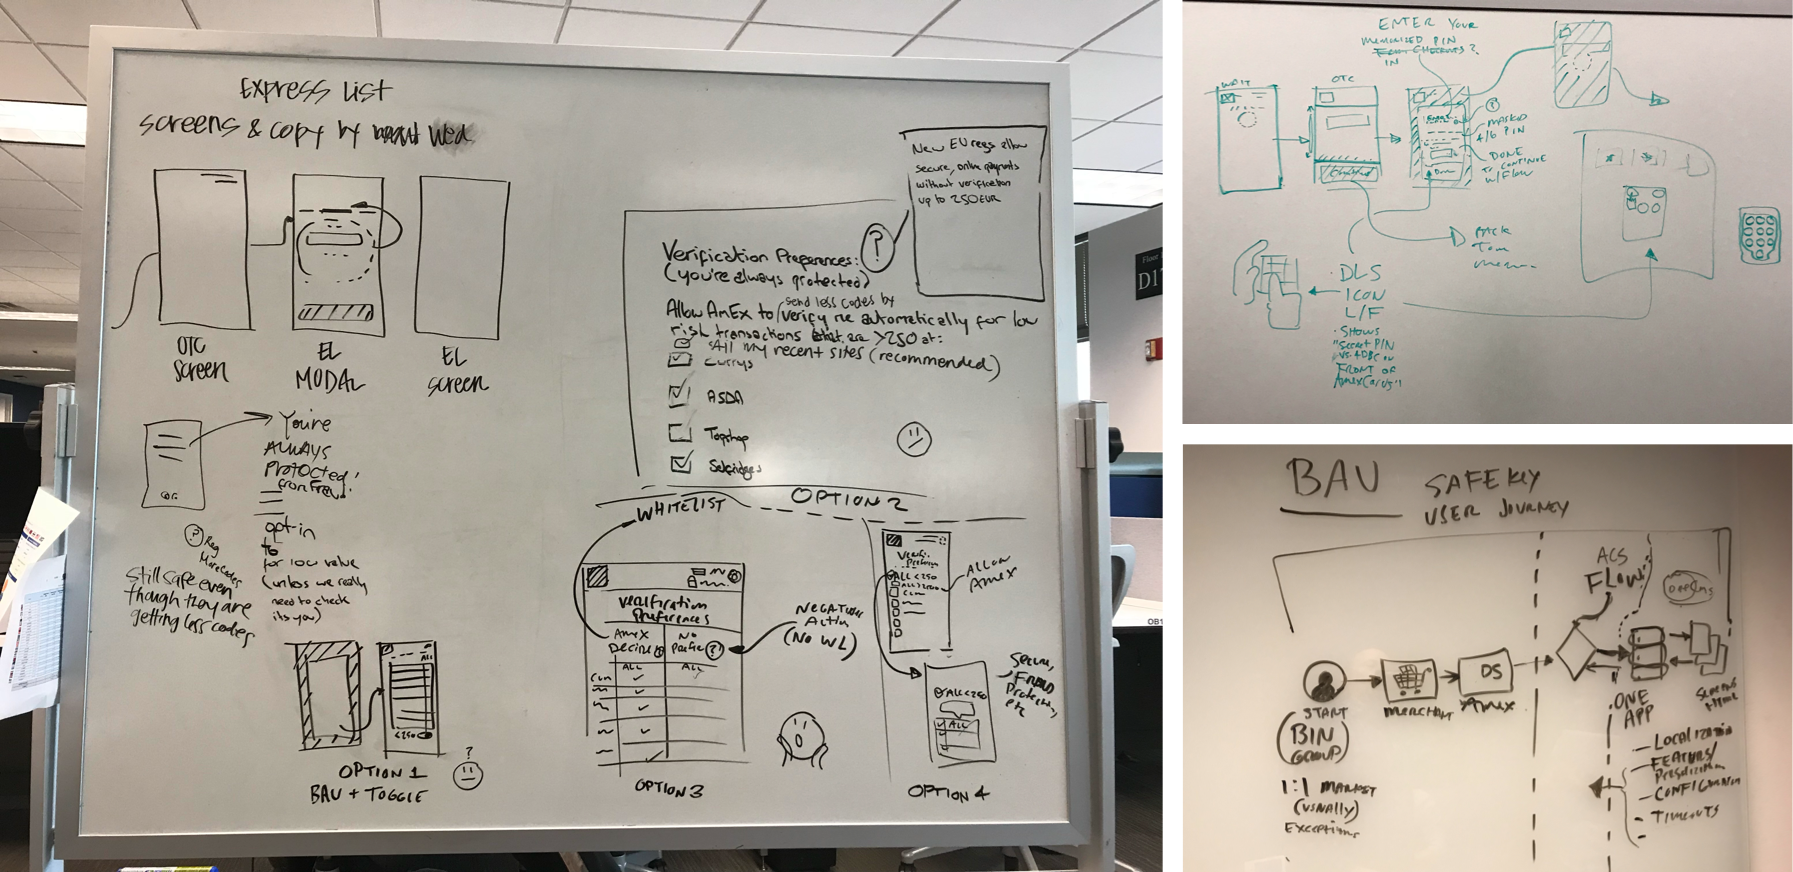 Express List
screens & copy by Wed
OTC
screen
EL
MODAL
EL
screen
You're
ALWAYS
protected
from Fraud.
opt-in
to
for low value
(unless we really
need to check
its you)
Still safe even
though they are
getting less codes
OPTION 1
BAU + TOGGLE
?
New EU regs allow
secure, online payments
without verification
up to 250 EUR
?
Verification Preferences:
(you're always protected)
send less codes by
Allow AmEx to / verify me automatically for low
risk transactions that are >250 at:
All my recent sites (recommended)
Currys
ASDA
Topshop
Selfridges
WHITELIST
OPTION 2
Verification
Preferences
Amex
Decide
No
?
ALL
ALL
Negative
Action
(No WL)
OPTION 3
ALL <250
Allow
Amex
ALL <250
ALL
Secure,
Fraud
Protection,
etc
OPTION 4
Floor
D17
OB1
ENTER YOUR
MEMORIZED PIN
IN
WAIT
OTC
?
MASKED
4/6 PIN
DONE
TO CONTINUE
W/FLOW
Done
BACK
TO
DLS
ICON
L/F
SHOWS
"Secret PIN
vs 4DBC on
FRONT OF
Amex Card"
BAU SAFEKEY
USER JOURNEY
ACS
FLOW
START
MERCHANT
DS
AMEX
(BIN
GROUP)
ONE
APP
1:1 MARKET
(USUALLY)
Exceptions
- LOCALIZATION
- FEATURES/
- CONFIGURATION
- TIMEOUTS